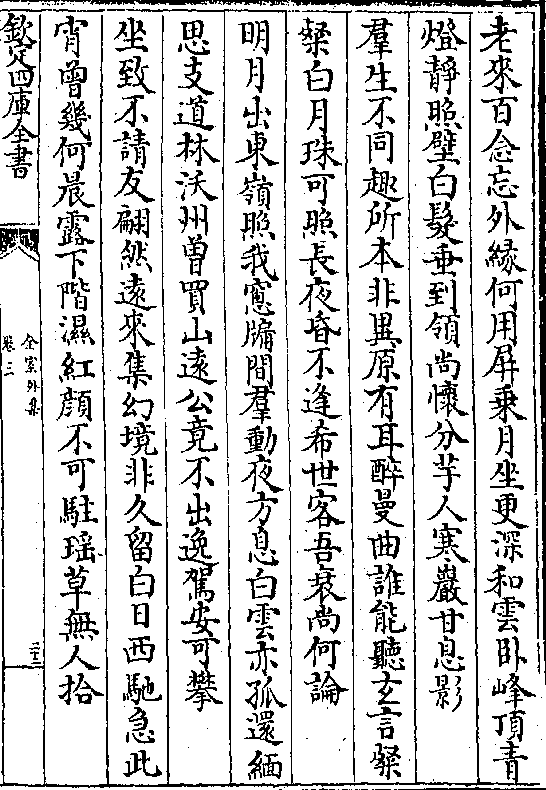 老來百念忘外緣何用屏乗月坐更深和雲卧峰頂青
燈靜照壁白髮垂到領尚懷分芋人寒巖甘息影
羣生不同趣所本非異原有耳醉曼曲誰能聽玄言粲
粲白月珠可照長夜昏不逢希世客吾衰尚何論
明月出東嶺照我窓牖間羣動夜方息白雲亦孤還緬
思支道林沃州曽買山遠公竟不出逸駕安可攀
坐致不請友翩然逺來集幻境非久留白日西馳急此
宵曽幾何晨露下階濕紅顔不可駐瑶草無人拾
欽定四庫全書
全室外集
卷三